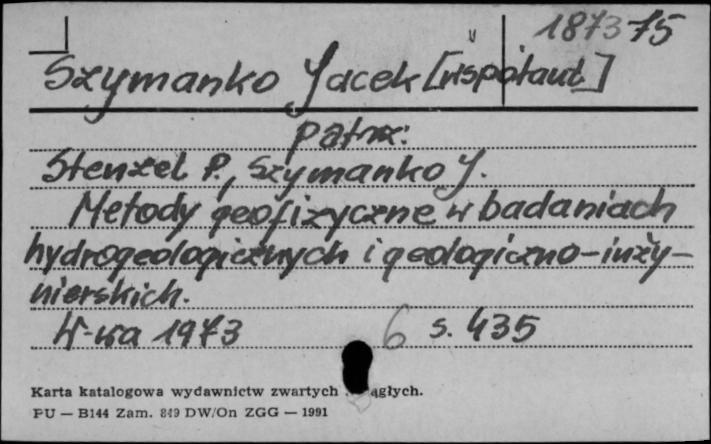 1873 75
Szymanko Jacek [współaut.]
patrz:
Stenzel P., Szymanko J.
Metody geofizyczne w badaniach
hydrogeologicznych i geologiczno-inży-
nierskich.
W-wa 1973 6 s. 435
Karta katalogowa wydawnictw zwartych
PU — B144 Zam. 849 DW/On ZGG — 1991